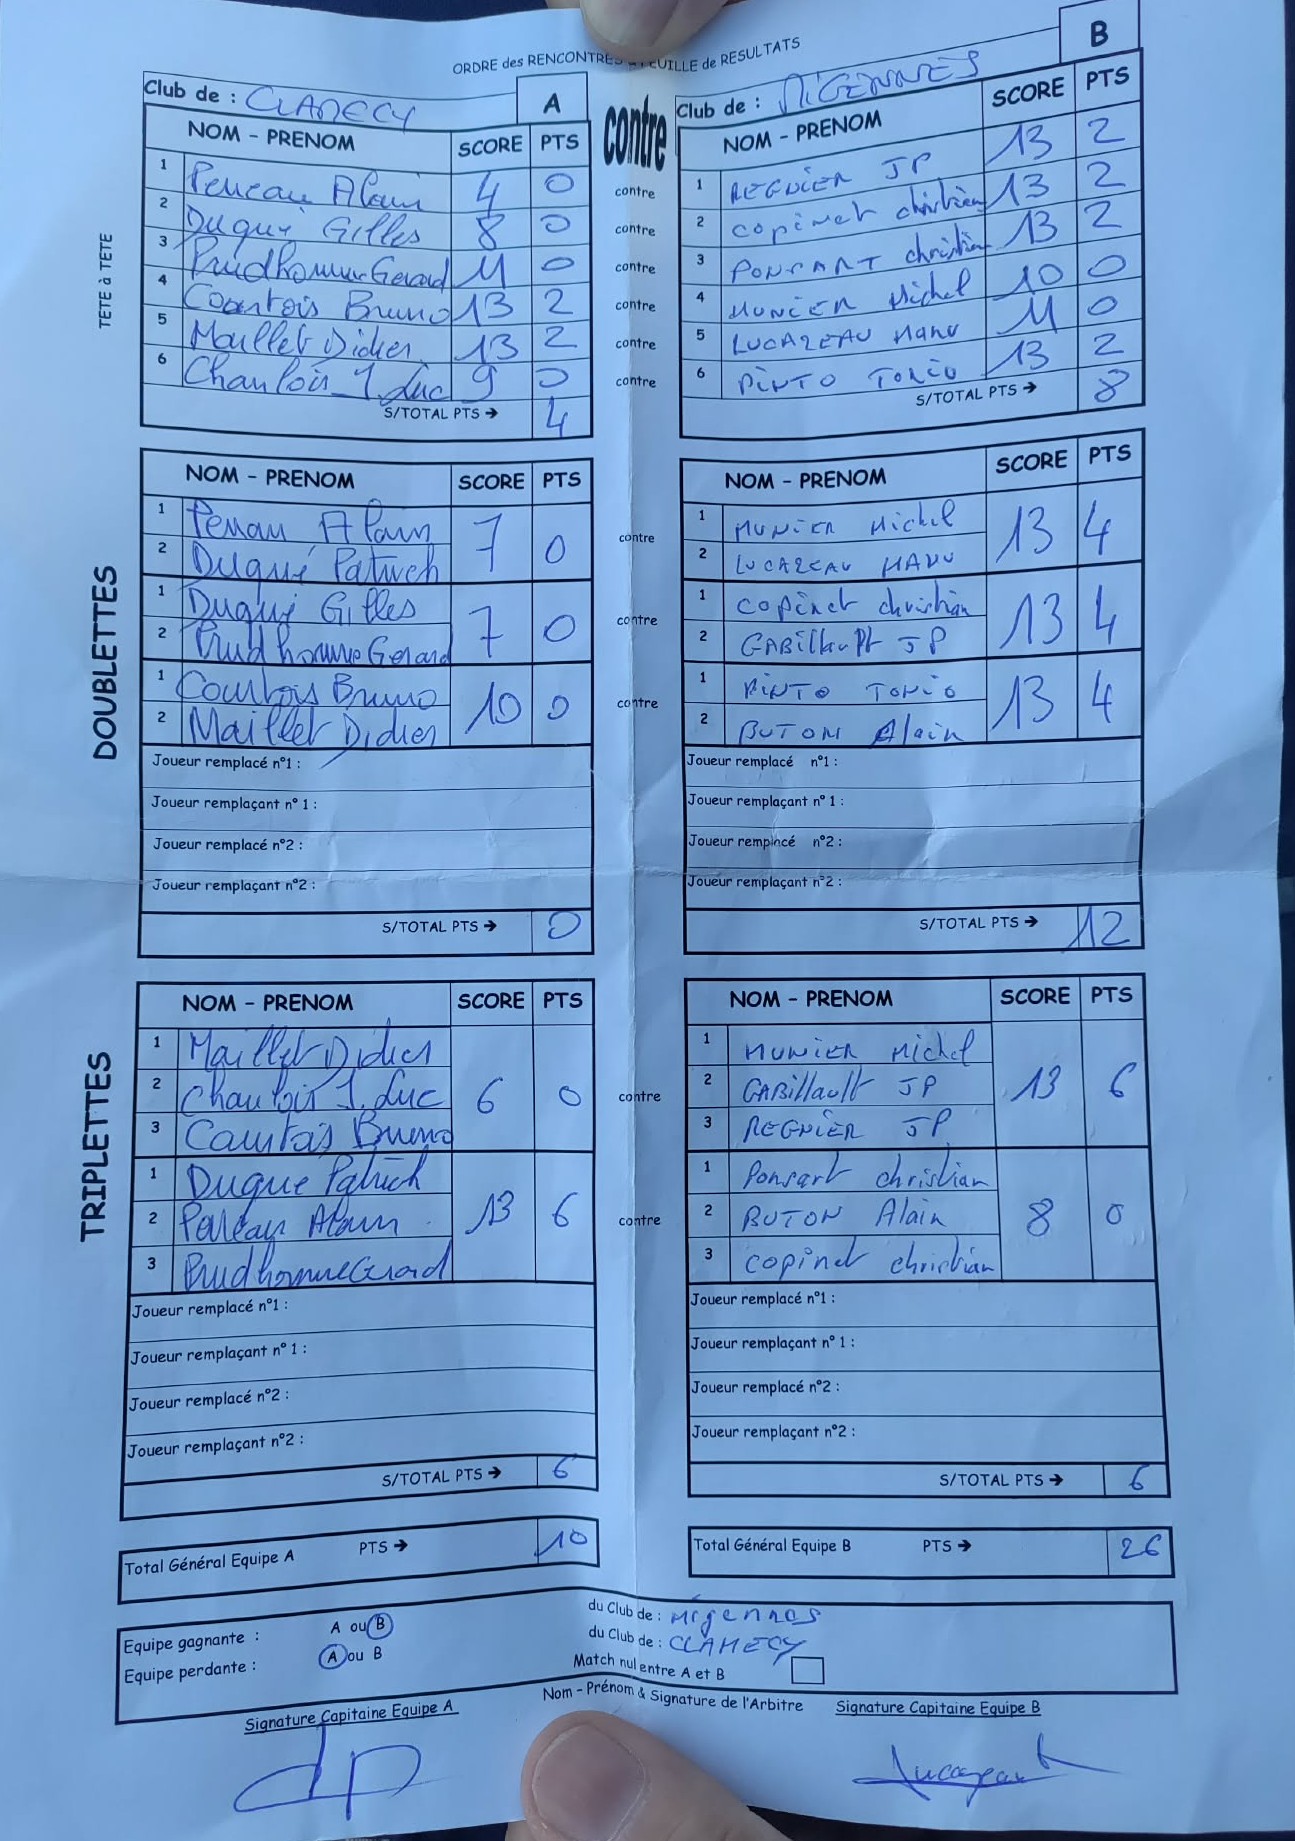 ORDRE des RENCONTRES & FEUILLE de RESULTATS
Club de : CLAMECY A
contre
Club de : MIGENNES B
TETE à TETE
NOM - PRENOM SCORE PTS
1 Perreau Alain 4 0
2 Duqué Gilles 8 0
3 Prudhomme Gerard 11 0
4 Courtois Bruno 13 2
5 Maillet Didier 13 2
6 Chanlois J. Luc 9 0
S/TOTAL PTS → 4
contre
contre
contre
contre
contre
contre
NOM - PRENOM SCORE PTS
1 REGNIER JP 13 2
2 COPINET christian 13 2
3 PONSART christian 13 2
4 MUNIER Michel 10 0
5 LUCAZEAU MANU 11 0
6 PINTO TONIO 13 2
S/TOTAL PTS → 8
DOUBLETTES
NOM - PRENOM SCORE PTS
1 Perreau Alain 7 0
2 Duqué Patrick
1 Duqué Gilles 7 0
2 Prudhomme Gerard
1 Courtois Bruno 10 0
2 Maillet Didier
Joueur remplacé n°1 :
Joueur remplaçant n° 1 :
Joueur remplacé n°2 :
Joueur remplaçant n°2 :
S/TOTAL PTS → 0
contre
contre
contre
NOM - PRENOM SCORE PTS
1 MUNIER Michel 13 4
2 LUCAZEAU MANU
1 COPINET christian 13 4
2 GABillault JP
1 PINTO TONIO 13 4
2 BUTON Alain
Joueur remplacé n°1 :
Joueur remplaçant n° 1 :
Joueur remplacé n°2 :
Joueur remplaçant n°2 :
S/TOTAL PTS → 12
TRIPLETTES
NOM - PRENOM SCORE PTS
1 Maillet Didier 6 0
2 Chanlois J. Luc
3 Courtois Bruno
1 Duqué Patrick 13 6
2 Perreau Alain
3 Prudhomme Gerard
Joueur remplacé n°1 :
Joueur remplaçant n° 1 :
Joueur remplacé n°2 :
Joueur remplaçant n°2 :
S/TOTAL PTS → 6
contre
contre
NOM - PRENOM SCORE PTS
1 MUNIER Michel 13 6
2 GABillault JP
3 REGNIER JP
1 Ponsart christian 8 0
2 BUTON Alain
3 copinet christian
Joueur remplacé n°1 :
Joueur remplaçant n° 1 :
Joueur remplacé n°2 :
Joueur remplaçant n°2 :
S/TOTAL PTS → 6
Total Général Equipe A PTS → 10
Total Général Equipe B PTS → 26
Equipe gagnante : A ou B du Club de : Migennes
Equipe perdante : A ou B du Club de : CLAMECY
Match nul entre A et B
Signature Capitaine Equipe A
Nom - Prénom & Signature de l'Arbitre
Signature Capitaine Equipe B
dp
Lucazeau